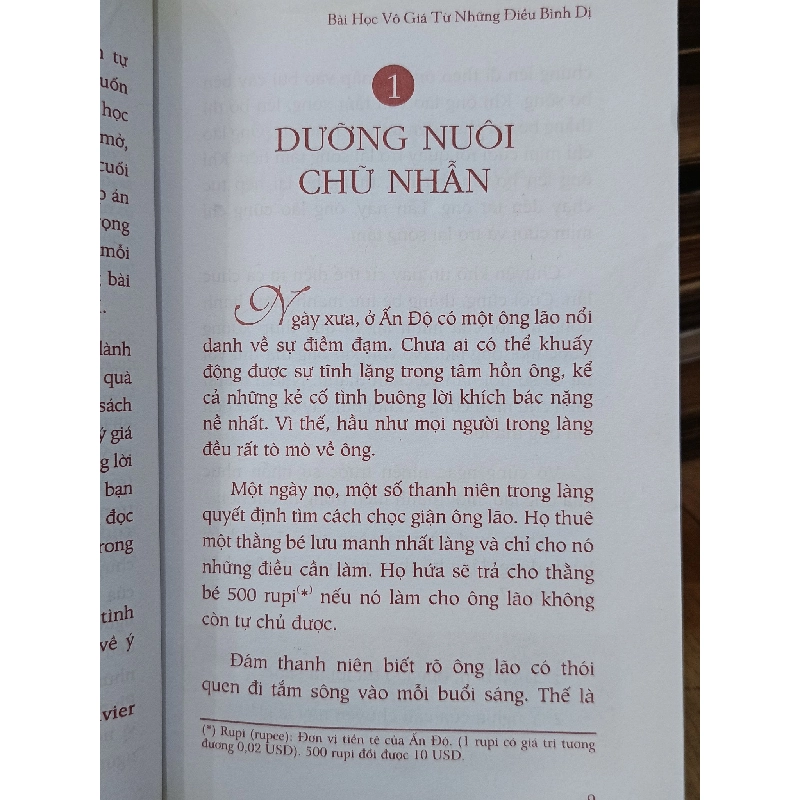 Bài Học Vô Giá Từ Những Điều Bình Dị
1
DƯỠNG NUÔI
CHỮ NHẪN
Ngày xưa, ở Ấn Độ có một ông lão nổi
danh về sự điềm đạm. Chưa ai có thể khuấy
động được sự tĩnh lặng trong tâm hồn ông, kể
cả những kẻ cố tình buông lời khích bác nặng
nề nhất. Vì thế, hầu như mọi người trong làng
đều rất tò mò về ông.
Một ngày nọ, một số thanh niên trong làng
quyết định tìm cách chọc giận ông lão. Họ thuê
một thằng bé lưu manh nhất làng và chỉ cho nó
những điều cần làm. Họ hứa sẽ trả cho thằng
bé 500 rupi(*) nếu nó làm cho ông lão không
còn tự chủ được.
Đám thanh niên biết rõ ông lão có thói
quen đi tắm sông vào mỗi buổi sáng. Thế là
(*) Rupi (rupee): Đơn vị tiền tệ của Ấn Độ. (1 rupi có giá trị tương
đương 0,02 USD). 500 rupi đổi được 10 USD.
tự
học
mờ,
cuối
án
mỗi
bài
lành
quà
sách
giá
lời
bạn
đọc
tình
về ý